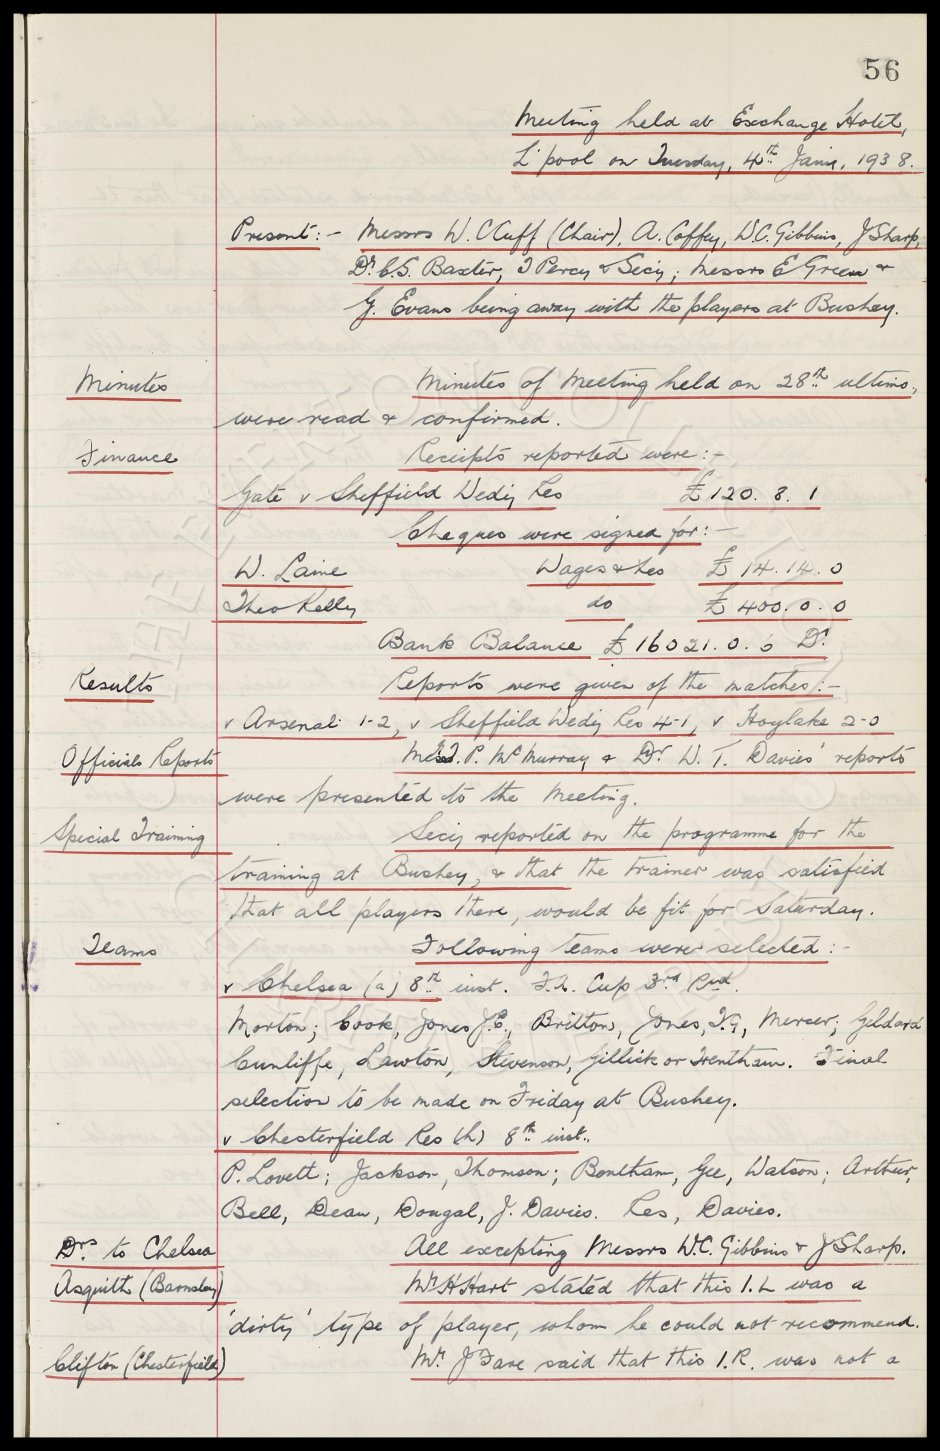 56
Meeting held at Exchange Hotel,
L'pool on Tuesday, 4th Jany. 1938.
Present:- Messrs W. C Cuff (Chair), A. Coffey, W.C. Gibbins, J Sharp,
Dr C.S. Baxter, T Percy & Secy; Messrs E Green &
G. Evans being away with the players at Bushey.
Minutes Minutes of Meeting held on 28th ultimo,
were read & confirmed.
Finance Receipts reported were:-
Gate v Sheffield Wedy Res £120. 8. 1
Cheques were signed for:-
W. Laine Wages & Co £ 14. 14. 0
Theo Kelly do £ 400. 0. 0
Bank Balance £16021. 0. 6 Dr
Results Reports were given of the matches:-
v Arsenal 1-2, v Sheffield Wedy Res 4-1, v Hoylake 2-0
Officials Reports P. McMurray & Dr. W. T. Davies' reports
were presented to the Meeting.
Special Training Secy reported on the programme for the
training at Bushey, & that the trainer was satisfied
that all players there, would be fit for Saturday.
Teams Following teams were selected:-
v Chelsea (a) 8th inst. F.A. Cup 3rd Rnd.
Morton; Cook, Jones J.E., Britton, Jones, T.G, Mercer; Geldard
Cunliffe, Lawton, Stevenson, Gillick or Trentham. Final
selection to be made on Friday at Bushey.
v Chesterfield Res (h) 8th inst.
P. Lovett; Jackson, Thomson; Bentham, Gee, Watson; Arthur,
Bell, Dean, Dougal, J. Davies. Res, Davies.
Drs to Chelsea All excepting Messrs W.C. Gibbins & J Sharp.
Asquith (Barnsley) Mr H Hart stated that this I.L was a
'dirty' type of player, whom he could not recommend.
Clifton (Chesterfield) Mr J Fare said that this I.R. was not a